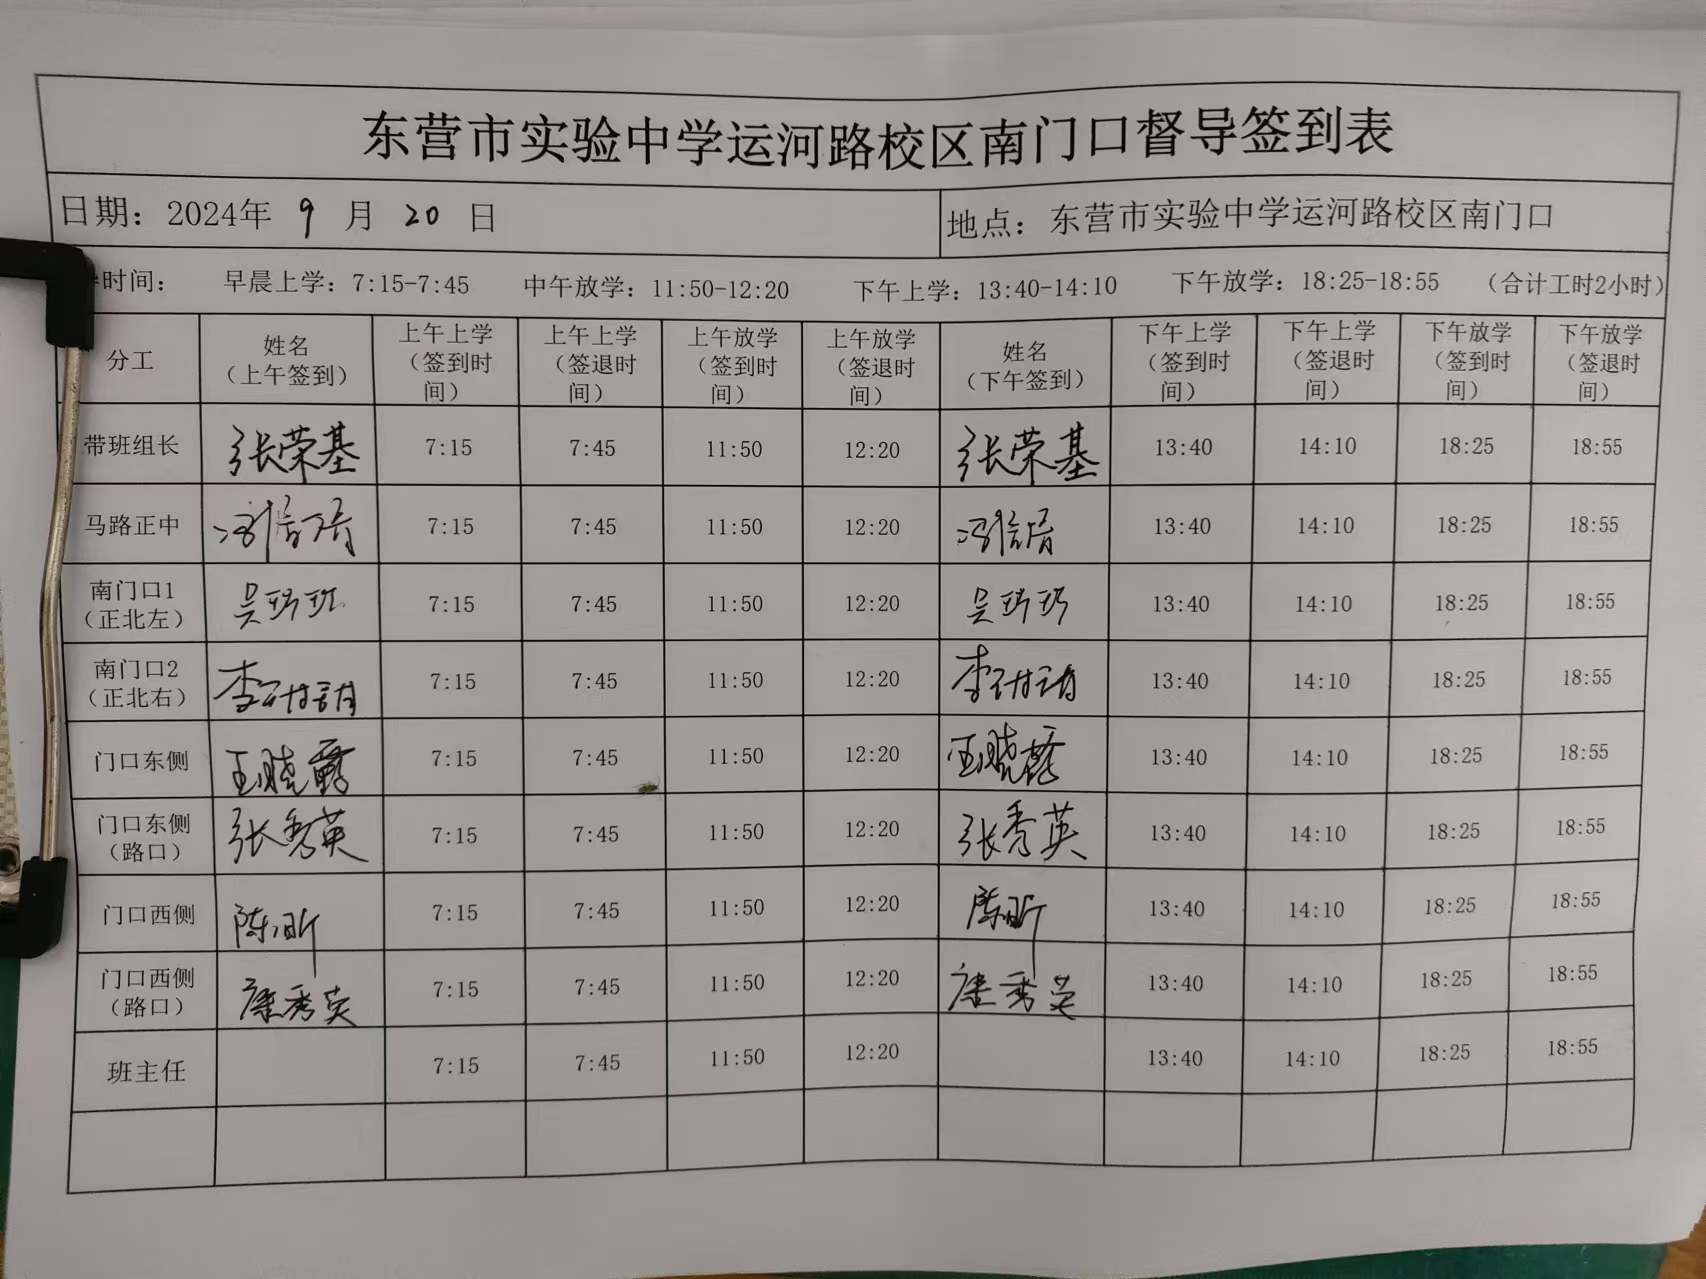 东营市实验中学运河路校区南门口督导签到表
日期：2024年 9 月 20 日 地点：东营市实验中学运河路校区南门口
时间： 早晨上学：7:15-7:45 中午放学：11:50-12:20 下午上学：13:40-14:10 下午放学：18:25-18:55 （合计工时2小时）
分工 姓名（上午签到） 上午上学（签到时间） 上午上学（签退时间） 上午放学（签到时间） 上午放学（签退时间） 姓名（下午签到） 下午上学（签到时间） 下午上学（签退时间） 下午放学（签到时间） 下午放学（签退时间）
带班组长 张荣基 7:15 7:45 11:50 12:20 张荣基 13:40 14:10 18:25 18:55
马路正中 7:15 7:45 11:50 12:20 13:40 14:10 18:25 18:55
南门口1（正北左） 吴 7:15 7:45 11:50 12:20 吴 13:40 14:10 18:25 18:55
南门口2（正北右） 李 7:15 7:45 11:50 12:20 李 13:40 14:10 18:25 18:55
门口东侧 王晓露 7:15 7:45 11:50 12:20 王晓露 13:40 14:10 18:25 18:55
门口东侧（路口） 张秀英 7:15 7:45 11:50 12:20 张秀英 13:40 14:10 18:25 18:55
门口西侧 陈昕 7:15 7:45 11:50 12:20 陈昕 13:40 14:10 18:25 18:55
门口西侧（路口） 康秀英 7:15 7:45 11:50 12:20 康秀英 13:40 14:10 18:25 18:55
班主任 7:15 7:45 11:50 12:20 13:40 14:10 18:25 18:55